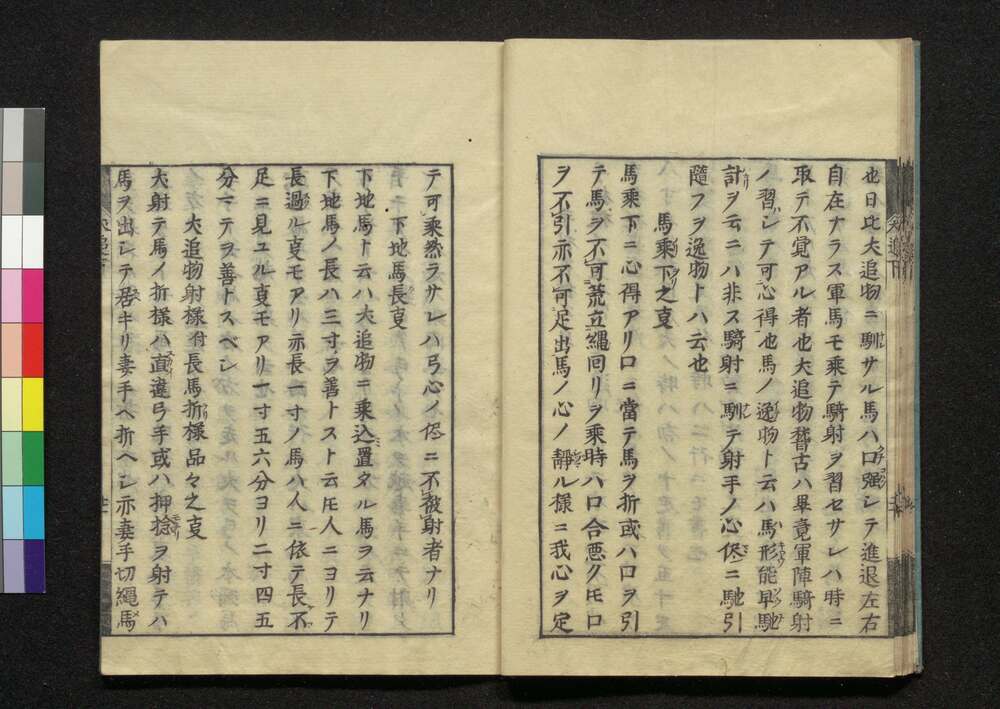 也日比犬追物ニ馴サル馬ハ口强シテ進退左右
自在ナラス軍馬モ乗テ騎射ヲ習セサレハ時ニ
取テ不覚アル者也犬追物稽古ハ畢竟軍陣騎射
ノ習シテ可心得也馬ノ逸物ト云ハ馬形能早馳
計ヲ云ニハ非ス騎射ニ馴テ射手ノ心侭ニ馳引
隨フヲ逸物トハ云也
馬乗下之㕝
馬乗下ニ心得アリ口ニ當テ馬ヲ折或ハ口ヲ引
テ馬ヲ不可荒立繩回リヲ乗時ハ口合悪クトモ口
ヲ不引亦不可足出馬ノ心ノ靜ル様ニ我心ヲ定
テ可乗然ラサレハ弓心ノ侭ニ不被射者ナリ
下地馬長㕝
下地馬ト云ハ犬追物ニ乗込置タル馬ヲ云ナリ
下地馬ノ長ハ三寸ヲ善トスト云トモ人ニヨリテ
長過ル㕝モアリ亦長一寸ノ馬ハ人ニ依テ長不
足ニ見ユル㕝モアリ一寸五六分ヨリ二寸四五
分マテヲ善トスベシ
犬追物射様付長馬折様品々之㕝
犬射テ馬ノ折様ハ直違弓手或ハ押捻ヲ射テハ
馬ヲ出シテ君キリ妻手ヘ折ヘシ亦妻手切繩馬
犬追下